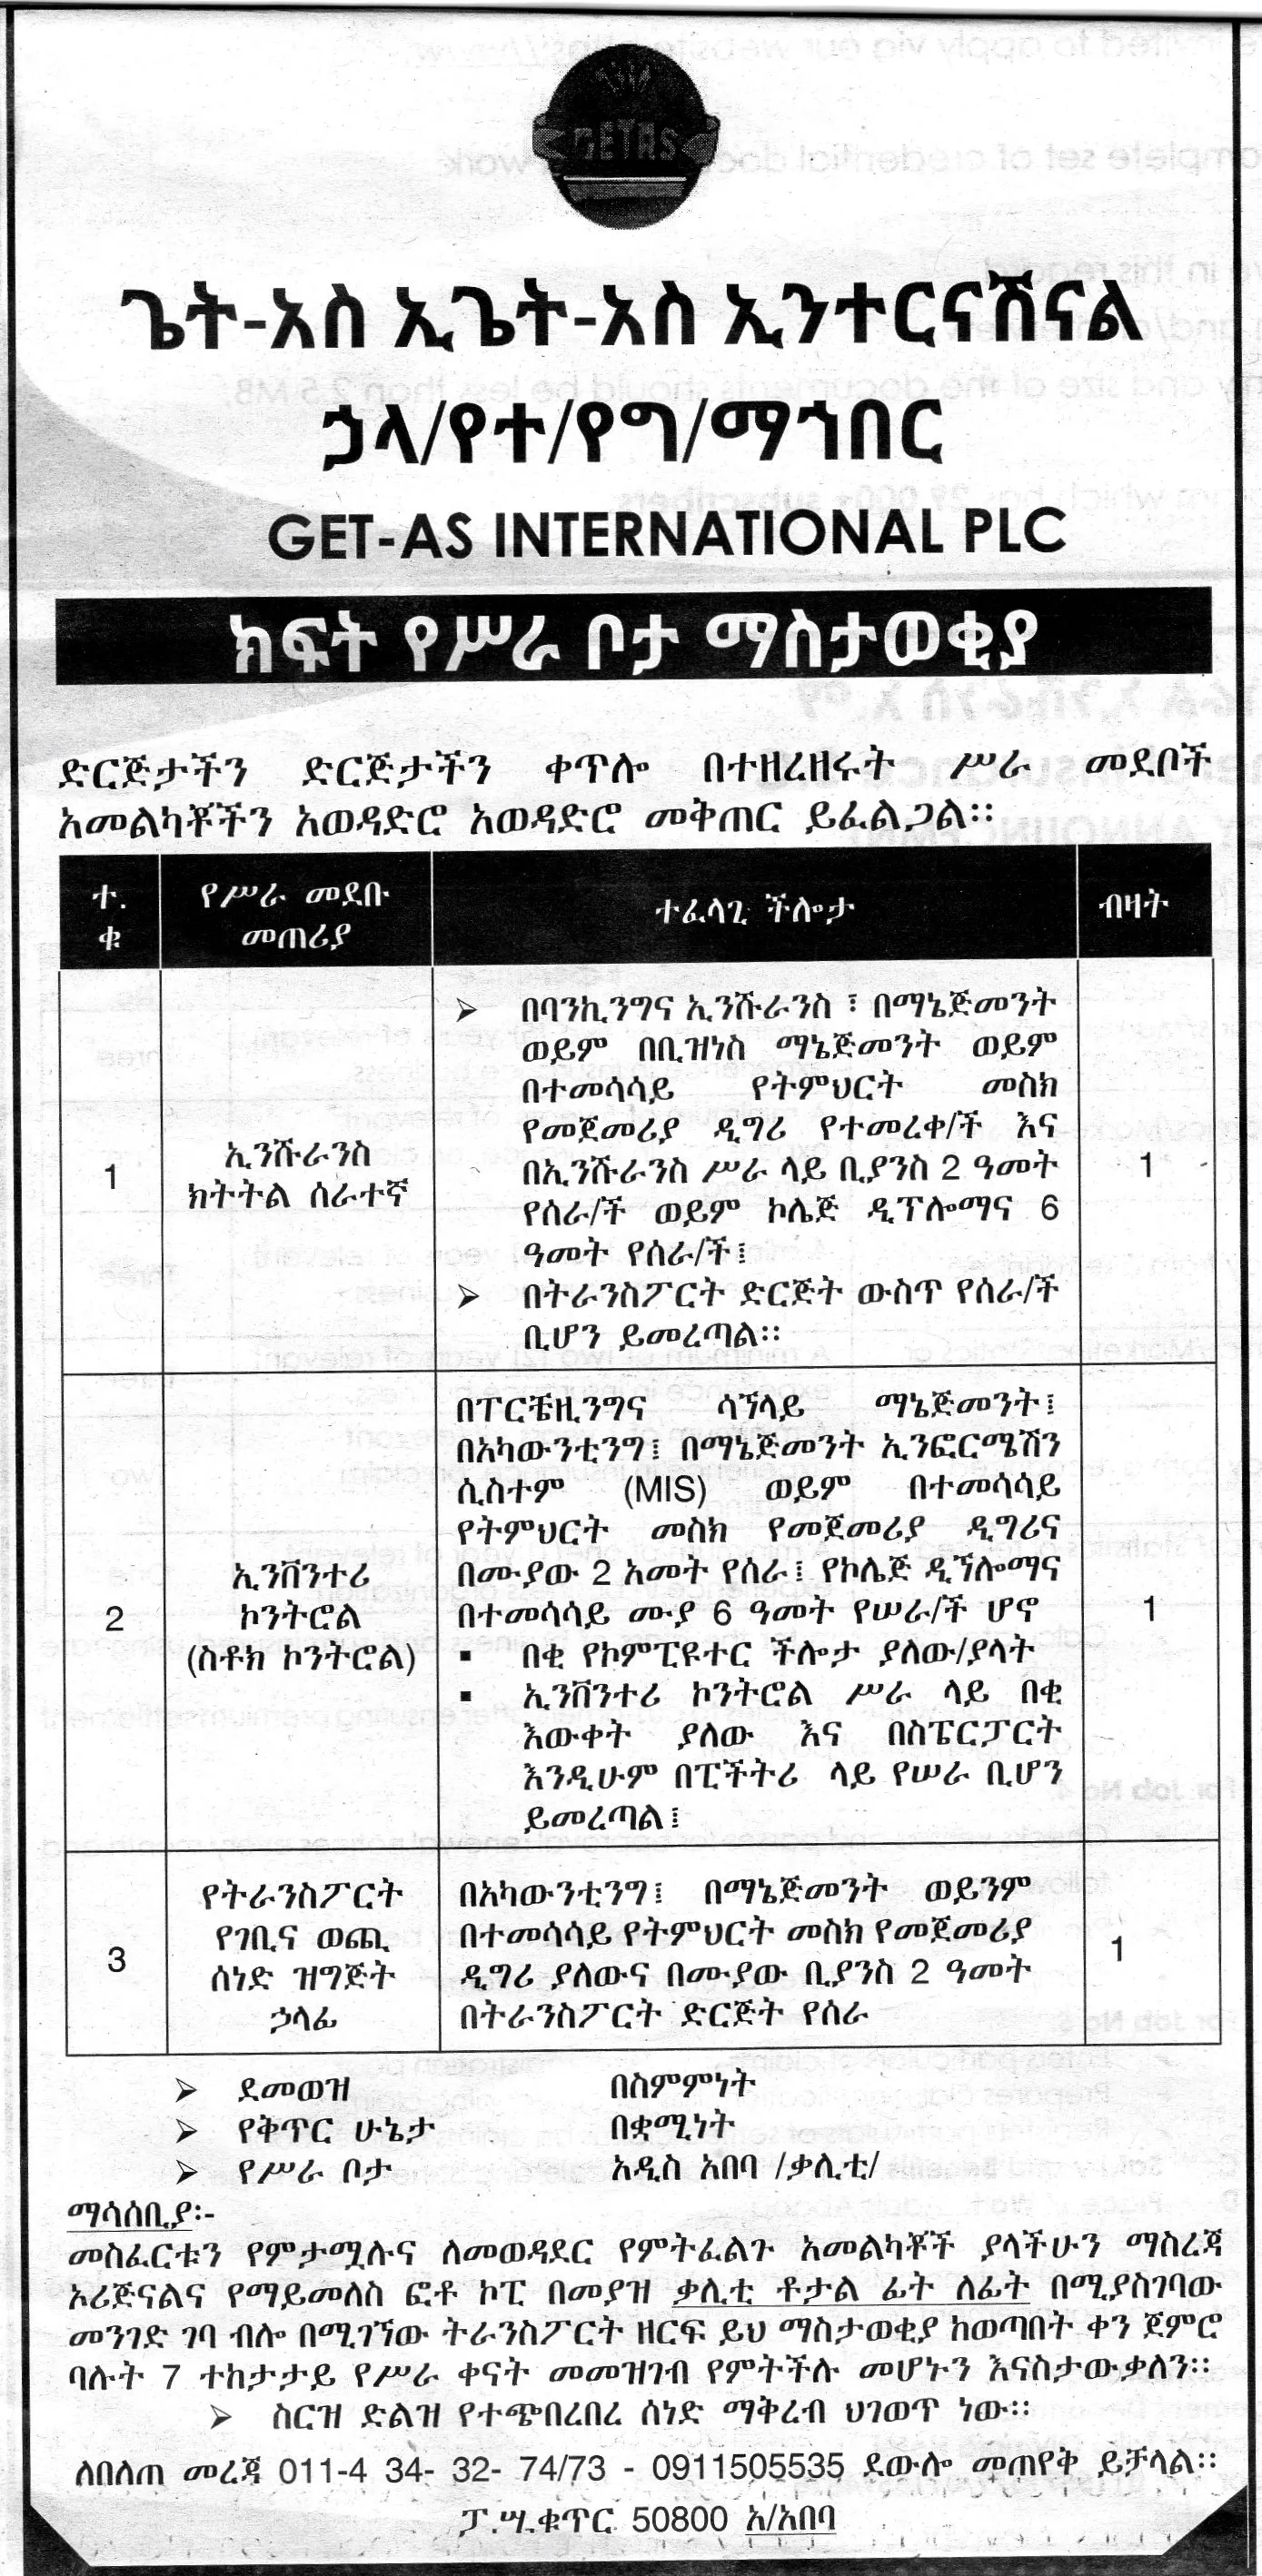 GETAS
ጌት-አስ ኢጌት-አስ ኢንተርናሽናል
ኃላ/የተ/የግ/ማኀበር
GET-AS INTERNATIONAL PLC
ክፍት የሥራ ቦታ ማስታወቂያ
ድርጅታችን ድርጅታችን ቀጥሎ በተዘረዘሩት ሥራ መደቦች
አመልካቾችን አወዳድሮ አወዳድሮ መቅጠር ይፈልጋል።
ተ.
ቁ
የሥራ መደቡ
መጠሪያ
ተፈላጊ ችሎታ
ብዛት
1
ኢንሹራንስ
ክትትል ሰራተኛ
➢ በባንኪንግና ኢንሹራንስ ፣ በማኔጅመንት
ወይም በቢዝነስ ማኔጅመንት ወይም
በተመሳሳይ የትምህርት መስክ
የመጀመሪያ ዲግሪ የተመረቀ/ች እና
በኢንሹራንስ ሥራ ላይ ቢያንስ 2 ዓመት
የሰራ/ች ወይም ኮሌጅ ዲፕሎማና 6
ዓመት የሰራ/ች፤
➢ በትራንስፖርት ድርጅት ውስጥ የሰራ/ች
ቢሆን ይመረጣል።
1
2
ኢንቨንተሪ
ኮንትሮል
(ስቶክ ኮንትሮል)
በፐርቼዚንግና ሳኘላይ ማኔጅመንት፤
በአካውንቲንግ፤ በማኔጅመንት ኢንፎርሜሽን
ሲስተም (MIS) ወይም በተመሳሳይ
የትምህርት መስክ የመጀመሪያ ዲግሪና
በሙያው 2 አመት የሰራ፤ የኮሌጅ ዲኘሎማና
በተመሳሳይ ሙያ 6 ዓመት የሠራ/ች ሆኖ
▪ በቂ የኮምፒዩተር ችሎታ ያለው/ያላት
▪ ኢንቨንተሪ ኮንትሮል ሥራ ላይ በቂ
እውቀት ያለው እና በስፔርፓርት
እንዲሁም በፒችትሪ ላይ የሠራ ቢሆን
ይመረጣል፤
1
3
የትራንስፖርት
የገቢና ወጪ
ሰነድ ዝግጅት
ኃላፊ
በአካውንቲንግ፤ በማኔጅመንት ወይንም
በተመሳሳይ የትምህርት መስክ የመጀመሪያ
ዲግሪ ያለውና በሙያው ቢያንስ 2 ዓመት
በትራንስፖርት ድርጅት የሰራ
1
➢ ደመወዝ በስምምነት
➢ የቅጥር ሁኔታ በቋሚነት
➢ የሥራ ቦታ አዲስ አበባ /ቃሊቲ/
ማሳሰቢያ፡-
መስፈርቱን የምታሟሉና ለመወዳደር የምትፈልጉ አመልካቾች ያላችሁን ማስረጃ
ኦሪጅናልና የማይመለስ ፎቶ ኮፒ በመያዝ ቃሊቲ ቶታል ፊት ለፊት በሚያስገባው
መንገድ ገባ ብሎ በሚገኘው ትራንስፖርት ዘርፍ ይህ ማስታወቂያ ከወጣበት ቀን ጀምሮ
ባሉት 7 ተከታታይ የሥራ ቀናት መመዝገብ የምትችሉ መሆኑን እናስታውቃለን።
➢ ስርዝ ድልዝ የተጭበረበረ ሰነድ ማቅረብ ህገወጥ ነው።
ለበለጠ መረጃ 011-4 34- 32- 74/73 - 0911505535 ደውሎ መጠየቅ ይቻላል።
ፓ.ሣ.ቁጥር 50800 አ/አበባ